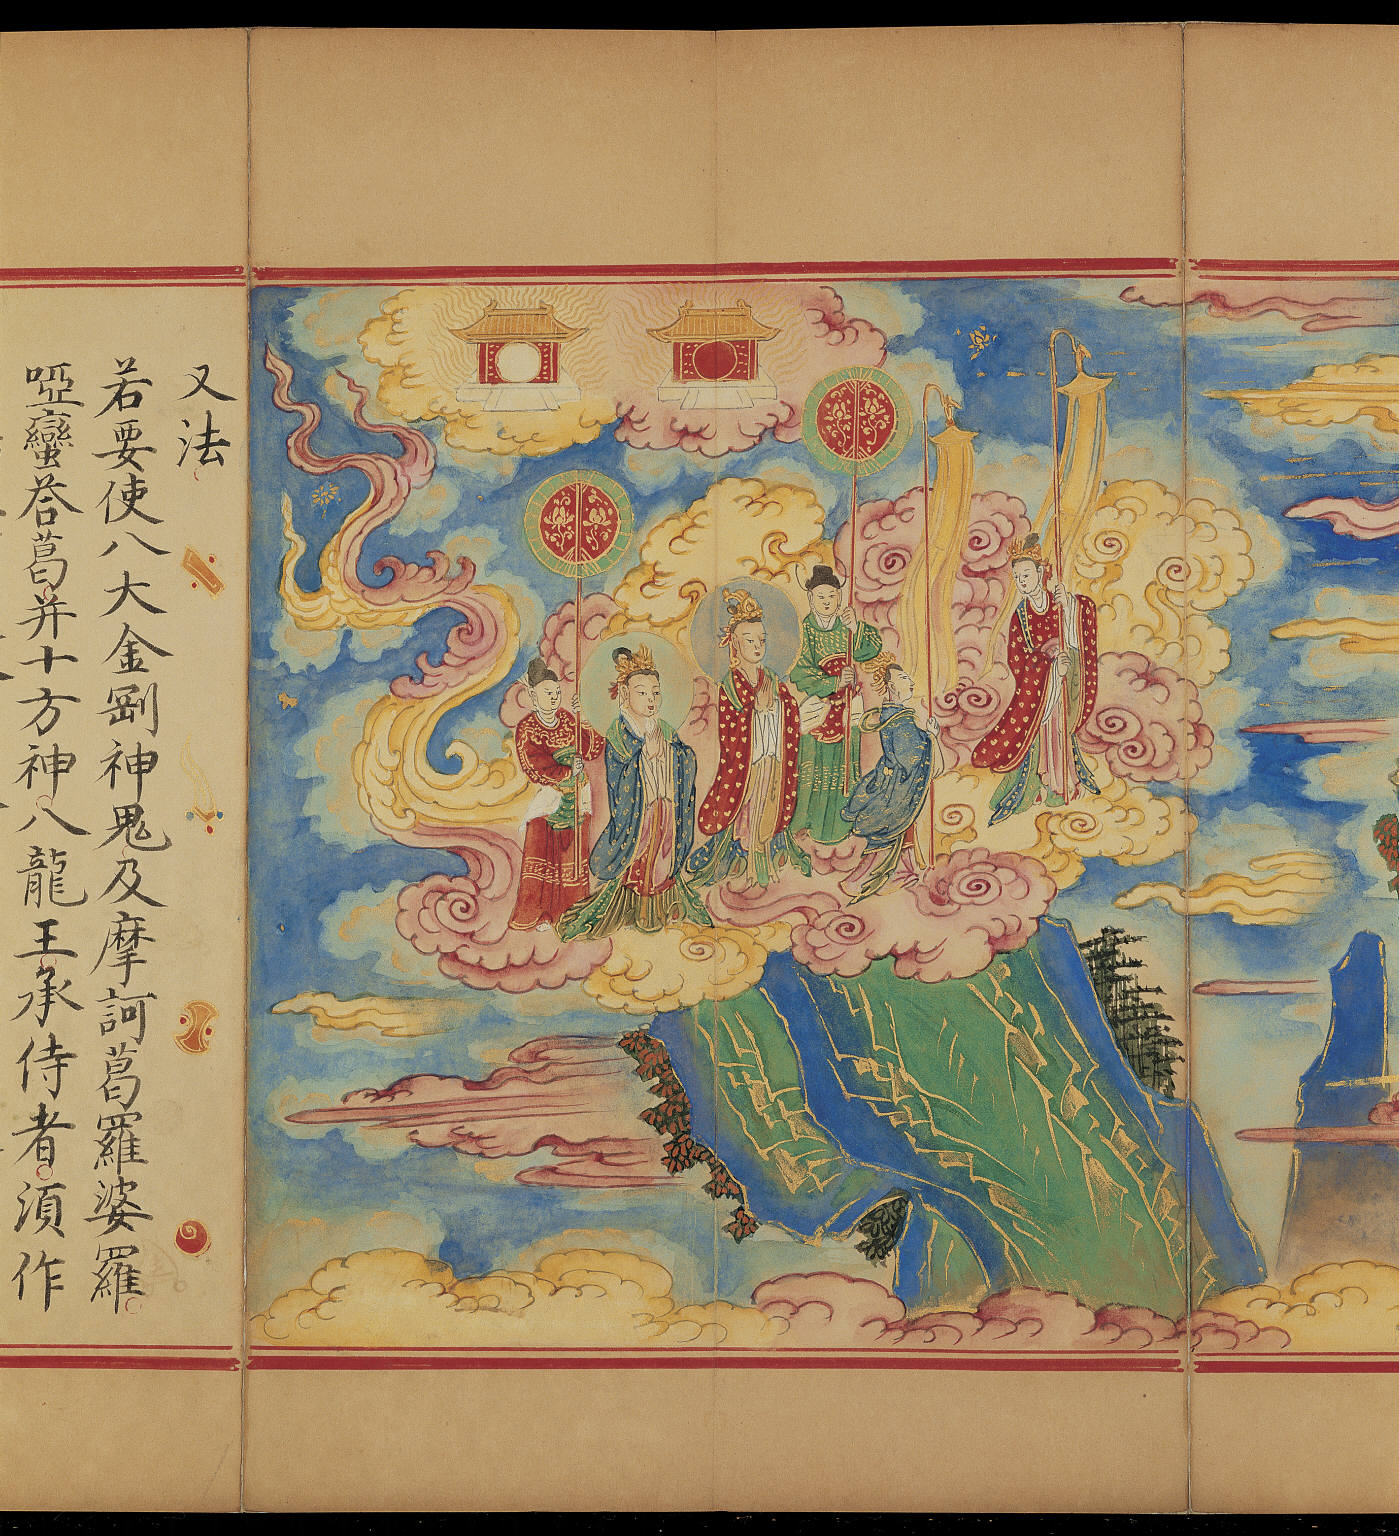 又法
若要使八大金剛神鬼及摩訶葛羅婆羅
啞蠻荅葛并十方神八龍王承侍者須作